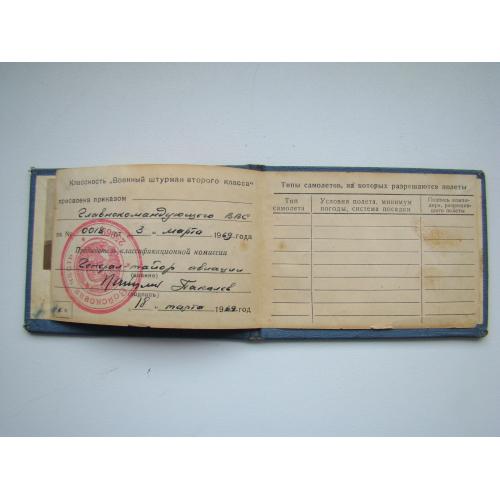 Классность „Военный штурман второго класса"
присвоена приказом
Главнокомандующего ВВС
за № 0018 от 3 „ марта 1969 года
Председатель классификационной комиссии
Генерал-майор авиации
(звание)
(подпись)
18 „ марта 1969 год
Типы самолетов, на которых разрешаются полеты
Тип самолета
Условия полета, минимум погоды, система посадки
Подпись командира, разрешившего полеты